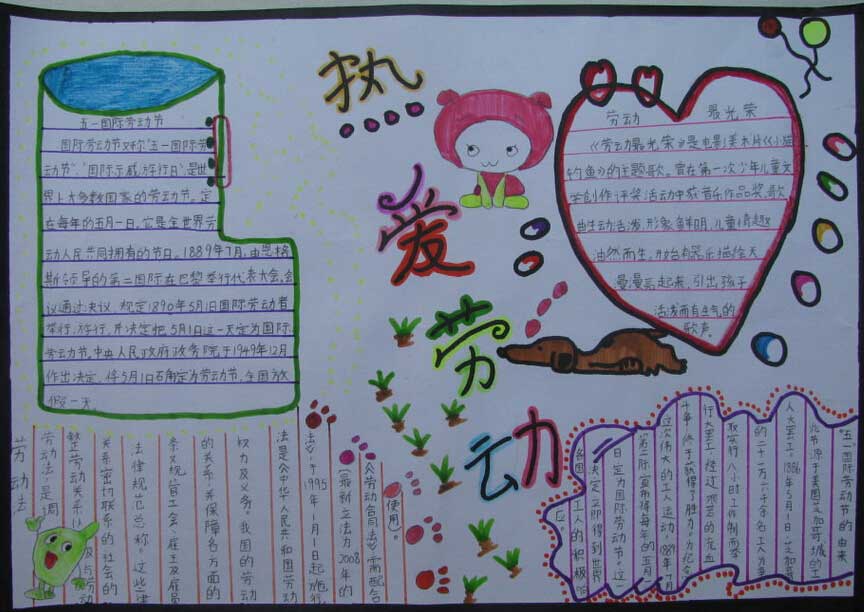 热
爱
劳
动
五一国际劳动节
国际劳动节又称"五一国际劳
动节"、"国际示威游行日"是世
界上大多数国家的劳动节。定
在每年的五月一日,它是全世界劳
动人民共同拥有的节日。1889年7月,由恩格
斯领导的第二国际在巴黎举行代表大会,会
议通过决议,规定1890年5月1日国际劳动者
举行,游行,并决定把5月1日这一天定为国际
劳动节。中央人民政府政务院于1949年12月
作出决定,将5月1日确定为劳动节,全国放
假一天。
劳动 最光荣
《劳动最光荣》是电影美术片《小猫
钓鱼》的主题歌。曾在第一次少年儿童文
学创作评奖活动中获音乐作品奖,歌
曲生动活泼,形象鲜明,儿童情趣
油然而生,开始有器乐描绘天
漫漫亮起来,引出孩子
活泼而有生气的
歌声。
劳动法
劳动法,是调
整劳动关系以及与劳动
关系密切联系的社会的
法律规范总称。这些法
条文规管工会、雇主及雇员
的关系,并保障各方面的
权力及义务。我国的劳动
法是《中华人民共和国劳动
法》,于1995年1月1日起施行。
(最新立法为2008年的
《劳动合同法》)需配合
使用。
"五一国际劳动节的由来
儿节源于美国芝加哥城的工
人大罢工,1886年5月1日,芝加哥
的二十一万六千余名工人为争
取实行八小时工作制而举
行大罢工,经过艰苦的流血
斗争,终于获得了胜力。为纪念
这次伟大的工人运动,1889年7月
第二国际宣布将每年的五月一
日定为国际劳动节。这一
决定立即得到世界
各国工人的积极响
应。